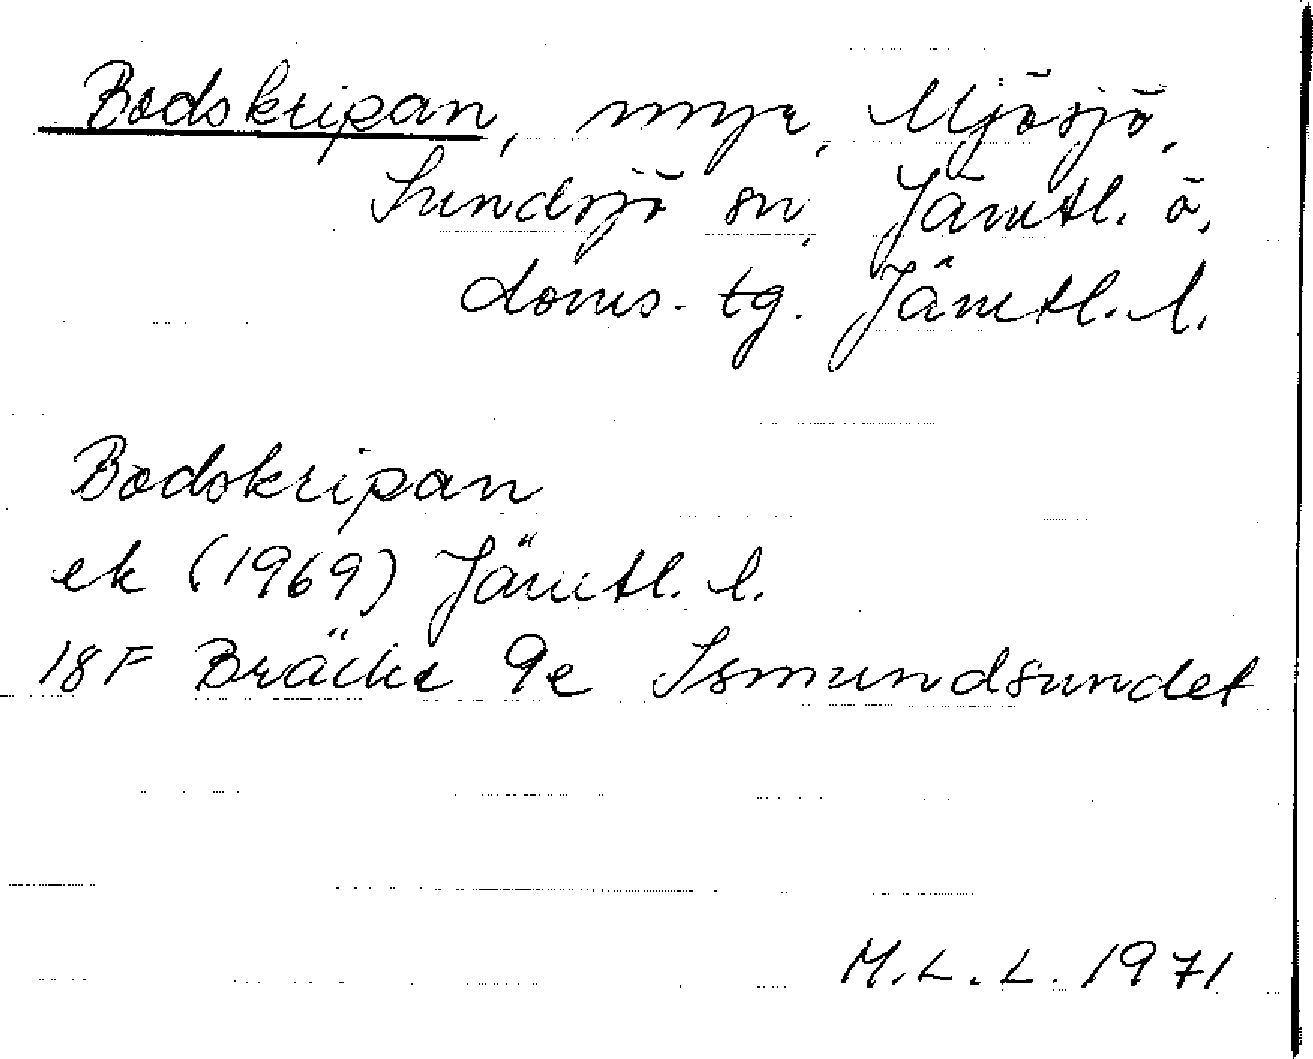 Bodskripan, myr, Mjösjö,
Sundsjö sn, Jämtl. ö.
doms. tg. Jämtl. l.
Bodskripan
ek (1969) Jämtl. l.
18F Bräcke 9e Ismundsundet
M.L.L. 1971